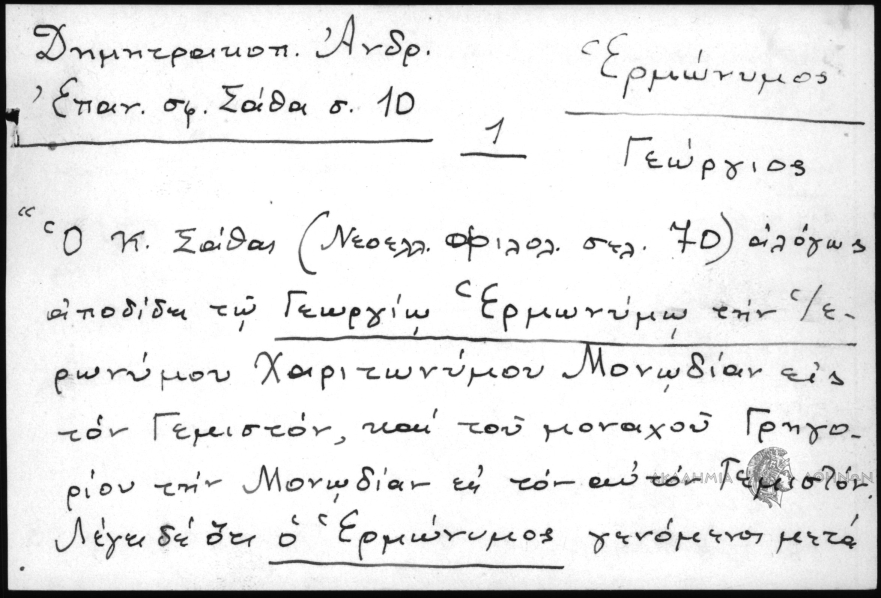 Δημητρακοπ. Ἀνδρ.
Ἐπαν. σφ. Σάθα σ. 10
1
Ἑρμώνυμος
Γεώργιος
“Ὁ κ. Σάθας (Νεοελλ. φιλολ. σελ. 70) ἀλόγως
ἀποδίδει τῷ Γεωργίῳ Ἑρμωνύμῳ τήν Ἱε-
ρωνύμου Χαριτωνύμου Μονῳδίαν εἰς
τόν Γεμιστόν, καί τοῦ μοναχοῦ Γρηγο-
ρίου τήν Μονῳδίαν εἰς τόν αὐτόν Γεμιστόν.
Λέγει δέ ὅτι ὁ Ἑρμώνυμος γενόμενος μετά
ΑΚΑΔΗΜΙΑ ΑΘΗΝΩΝ